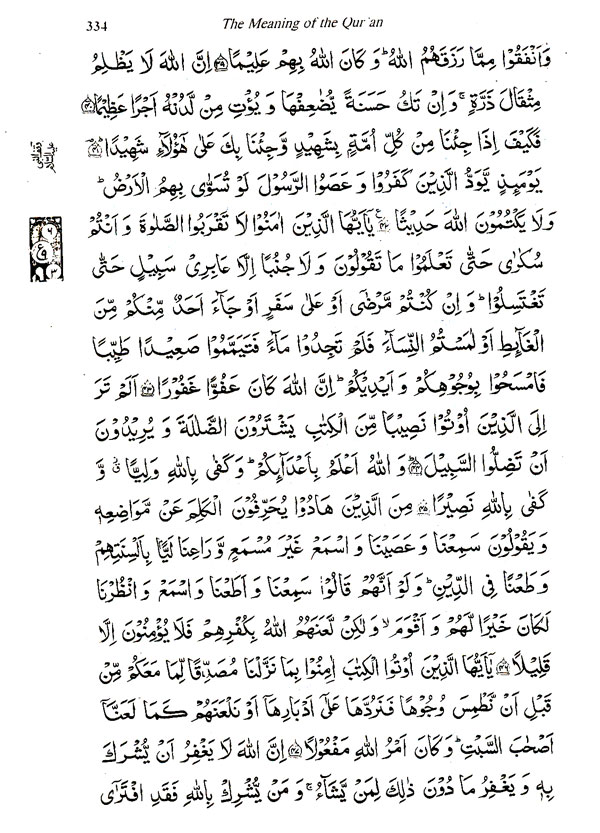 334 The Meaning of the Qur'an
وَاَنْفَقُوْا مِمَّا رَزَقَهُمُ اللّٰهُ ؕ وَ كَانَ اللّٰهُ بِهِمْ عَلِيْمًا ﴿۳۹﴾ اِنَّ اللّٰهَ لَا يَظْلِمُ
مِثْقَالَ ذَرَّةٍ ۚ وَ اِنْ تَكُ حَسَنَةً يُّضٰعِفْهَا وَ يُؤْتِ مِنْ لَّدُنْهُ اَجْرًا عَظِيْمًا ﴿۴۰﴾
فَكَيْفَ اِذَا جِئْنَا مِنْ كُلِّ اُمَّةٍۭ بِشَهِيْدٍ وَّجِئْنَا بِكَ عَلٰى هٰۤؤُلَآءِ شَهِيْدًا ﴿۴۱﴾
يَوْمَىِٕذٍ يَّوَدُّ الَّذِيْنَ كَفَرُوْا وَ عَصَوُا الرَّسُوْلَ لَوْ تُسَوّٰى بِهِمُ الْاَرْضُ ؕ
وَ لَا يَكْتُمُوْنَ اللّٰهَ حَدِيْثًا ﴿۴۲﴾ يٰۤاَيُّهَا الَّذِيْنَ اٰمَنُوْا لَا تَقْرَبُوا الصَّلٰوةَ وَ اَنْتُمْ
سُكٰرٰى حَتّٰى تَعْلَمُوْا مَا تَقُوْلُوْنَ وَ لَا جُنُبًا اِلَّا عَابِرِيْ سَبِيْلٍ حَتّٰى
تَغْتَسِلُوْا ؕ وَ اِنْ كُنْتُمْ مَّرْضٰۤى اَوْ عَلٰى سَفَرٍ اَوْ جَآءَ اَحَدٌ مِّنْكُمْ مِّنَ
الْغَآىِٕطِ اَوْ لٰمَسْتُمُ النِّسَآءَ فَلَمْ تَجِدُوْا مَآءً فَتَيَمَّمُوْا صَعِيْدًا طَيِّبًا
فَامْسَحُوْا بِوُجُوْهِكُمْ وَ اَيْدِيْكُمْ ؕ اِنَّ اللّٰهَ كَانَ عَفُوًّا غَفُوْرًا ﴿۴۳﴾ اَلَمْ تَرَ
اِلَى الَّذِيْنَ اُوْتُوْا نَصِيْبًا مِّنَ الْكِتٰبِ يَشْتَرُوْنَ الضَّلٰلَةَ وَ يُرِيْدُوْنَ
اَنْ تَضِلُّوا السَّبِيْلَ ﴿۴۴﴾ وَ اللّٰهُ اَعْلَمُ بِاَعْدَآىِٕكُمْ ؕ وَ كَفٰى بِاللّٰهِ وَلِيًّا ۙ وَّ
كَفٰى بِاللّٰهِ نَصِيْرًا ﴿۴۵﴾ مِنَ الَّذِيْنَ هَادُوْا يُحَرِّفُوْنَ الْكَلِمَ عَنْ مَّوَاضِعِهٖ
وَ يَقُوْلُوْنَ سَمِعْنَا وَ عَصَيْنَا وَ اسْمَعْ غَيْرَ مُسْمَعٍ وَّ رَاعِنَا لَيًّۢا بِاَلْسِنَتِهِمْ
وَ طَعْنًا فِي الدِّيْنِ ؕ وَ لَوْ اَنَّهُمْ قَالُوْا سَمِعْنَا وَ اَطَعْنَا وَ اسْمَعْ وَ انْظُرْنَا
لَكَانَ خَيْرًا لَّهُمْ وَ اَقْوَمَ ۙ وَ لٰكِنْ لَّعَنَهُمُ اللّٰهُ بِكُفْرِهِمْ فَلَا يُؤْمِنُوْنَ اِلَّا
قَلِيْلًا ﴿۴۶﴾ يٰۤاَيُّهَا الَّذِيْنَ اُوْتُوا الْكِتٰبَ اٰمِنُوْا بِمَا نَزَّلْنَا مُصَدِّقًا لِّمَا مَعَكُمْ مِّنْ
قَبْلِ اَنْ نَّطْمِسَ وُجُوْهًا فَنَرُدَّهَا عَلٰۤى اَدْبَارِهَاۤ اَوْ نَلْعَنَهُمْ كَمَا لَعَنَّاۤ
اَصْحٰبَ السَّبْتِ ؕ وَ كَانَ اَمْرُ اللّٰهِ مَفْعُوْلًا ﴿۴۷﴾ اِنَّ اللّٰهَ لَا يَغْفِرُ اَنْ يُّشْرَكَ
بِهٖ وَ يَغْفِرُ مَا دُوْنَ ذٰلِكَ لِمَنْ يَّشَآءُ ۚ وَ مَنْ يُّشْرِكْ بِاللّٰهِ فَقَدِ افْتَرٰۤى